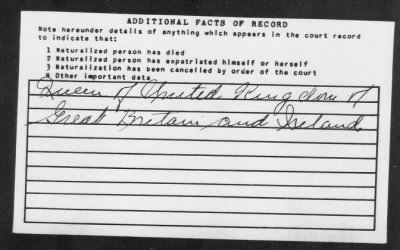 ADDITIONAL FACTS OF RECORD
Note hereunder details of anything which appears in the court record
to indicate that:
1 Naturalized person has died
2 Naturalized person has expatriated himself or herself
3 Naturalization has been cancelled by order of the court
4 Other important data
Queen of United Kingdom of
Great Britain and Ireland